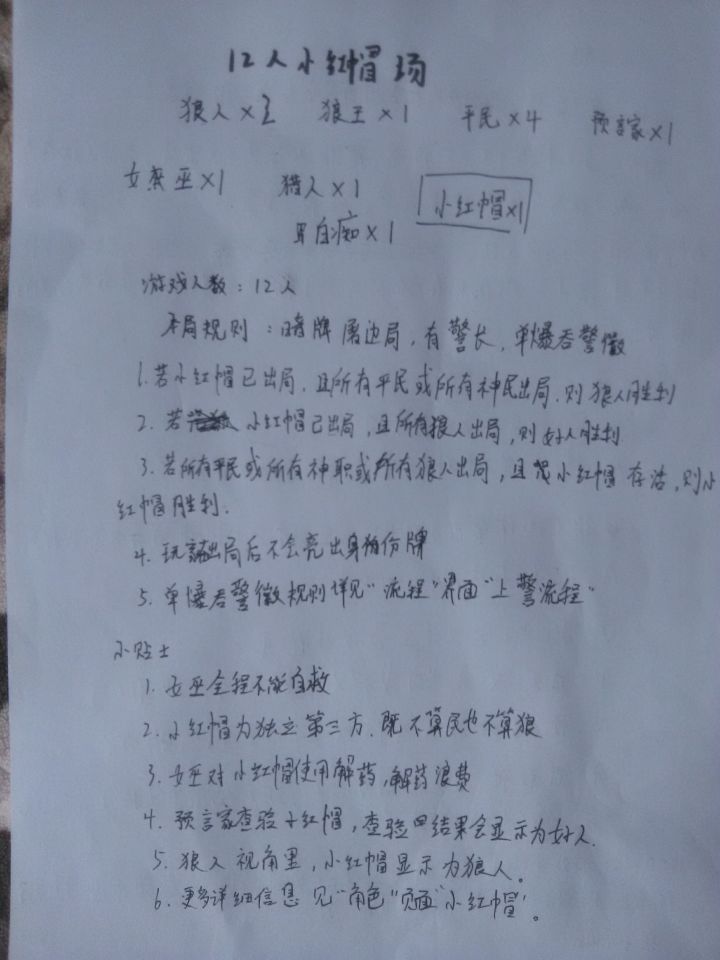 12人小红帽场
狼人×3 狼王×1 平民×4 预言家×1
女巫×1 猎人×1 小红帽×1
白痴×1
游戏人数：12人
本局规则：暗牌屠边局，有警长，单爆吞警徽
1.若小红帽已出局，且所有平民或所有神民出局，则狼人胜利
2.若小红帽已出局，且所有狼人出局，则好人胜利
3.若所有平民或所有神职或所有狼人出局，且小红帽存活，则小
红帽胜利.
4.玩家出局后不会亮出身份牌
5.单爆吞警徽规则详见"流程"界面"上警流程"
小贴士
1.女巫全程不能自救
2.小红帽为独立第三方.既不算民也不算狼
3.女巫对小红帽使用解药,解药浪费
4.预言家查验小红帽,查验结果会显示为好人.
5.狼人视角里,小红帽显示为狼人。
6.更多详细信息见"角色"页面"小红帽"。